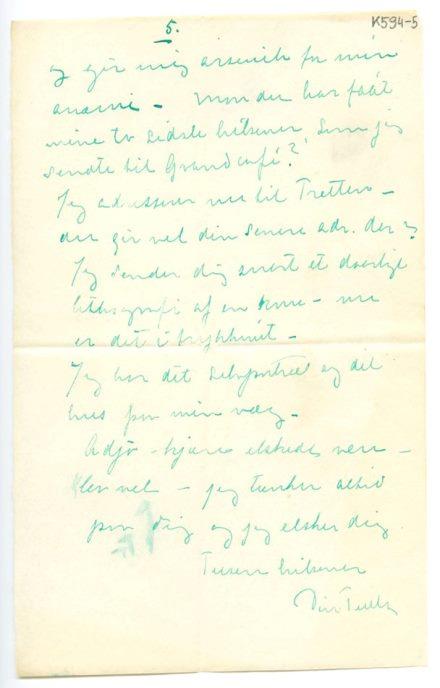 K594-5
5.
og gir mig arsenik for min
anæmi – Mon du har fååt
mine to sidste hilsener som jeg
sendte til Grandcafé?
Jeg adresserer nu til Tretten –
du gir vel din senere adr. der?
Jeg sender dig snart et dårligt
lithografi af en kone – nu
er det i trykkeriet –
Jeg har dit selvportræt og dit
hus på min væg –
Adjø – kjære elskede ven –
lev vel – jeg tænker altid
på dig og jeg elsker dig
Tusen hilsener
Din Tulla